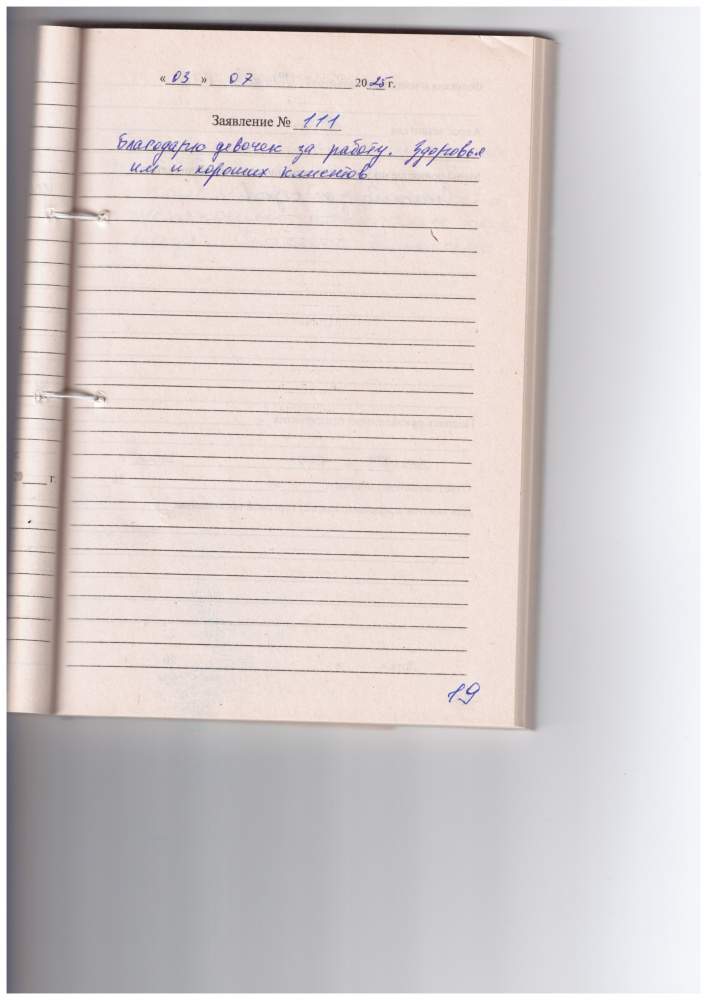 « 03 » 07 2025 г.
Заявление № 111
Благодарю девочек за работу. Здоровья
им и хороших клиентов
г
19